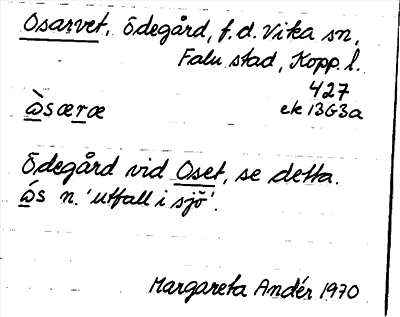 Osarvet, ödegård, f.d. Vika sn,
Falu stad, Kopp. l.
427
ek 13G3a
ὼsæræ
Ödegård vid Oset, se detta.
ώs n. 'utfall i sjö'.
Margareta Andér 1970